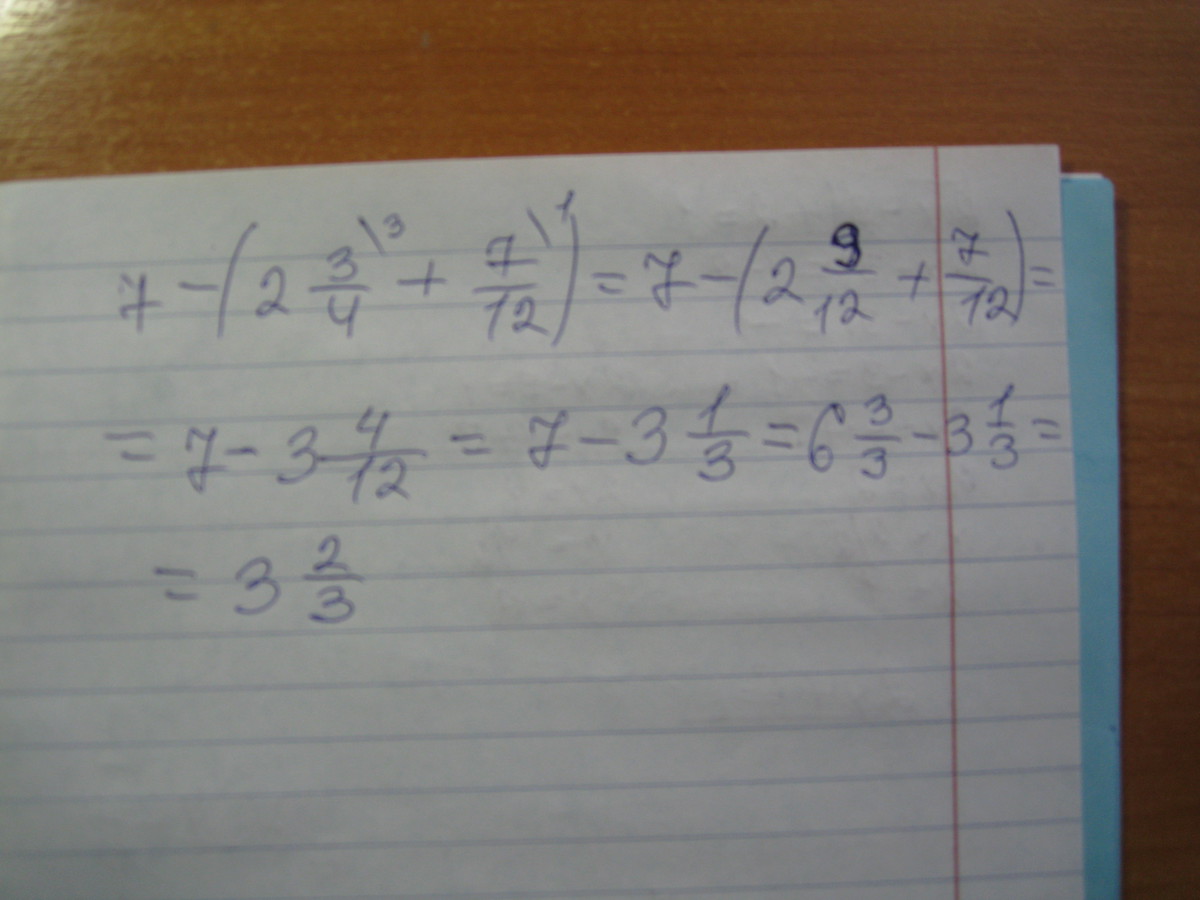 7 - (2 3/4 \3 + 7/12 \1) = 7 - (2 9/12 + 7/12) =
= 7 - 3 4/12 = 7 - 3 1/3 = 6 3/3 - 3 1/3 =
= 3 2/3